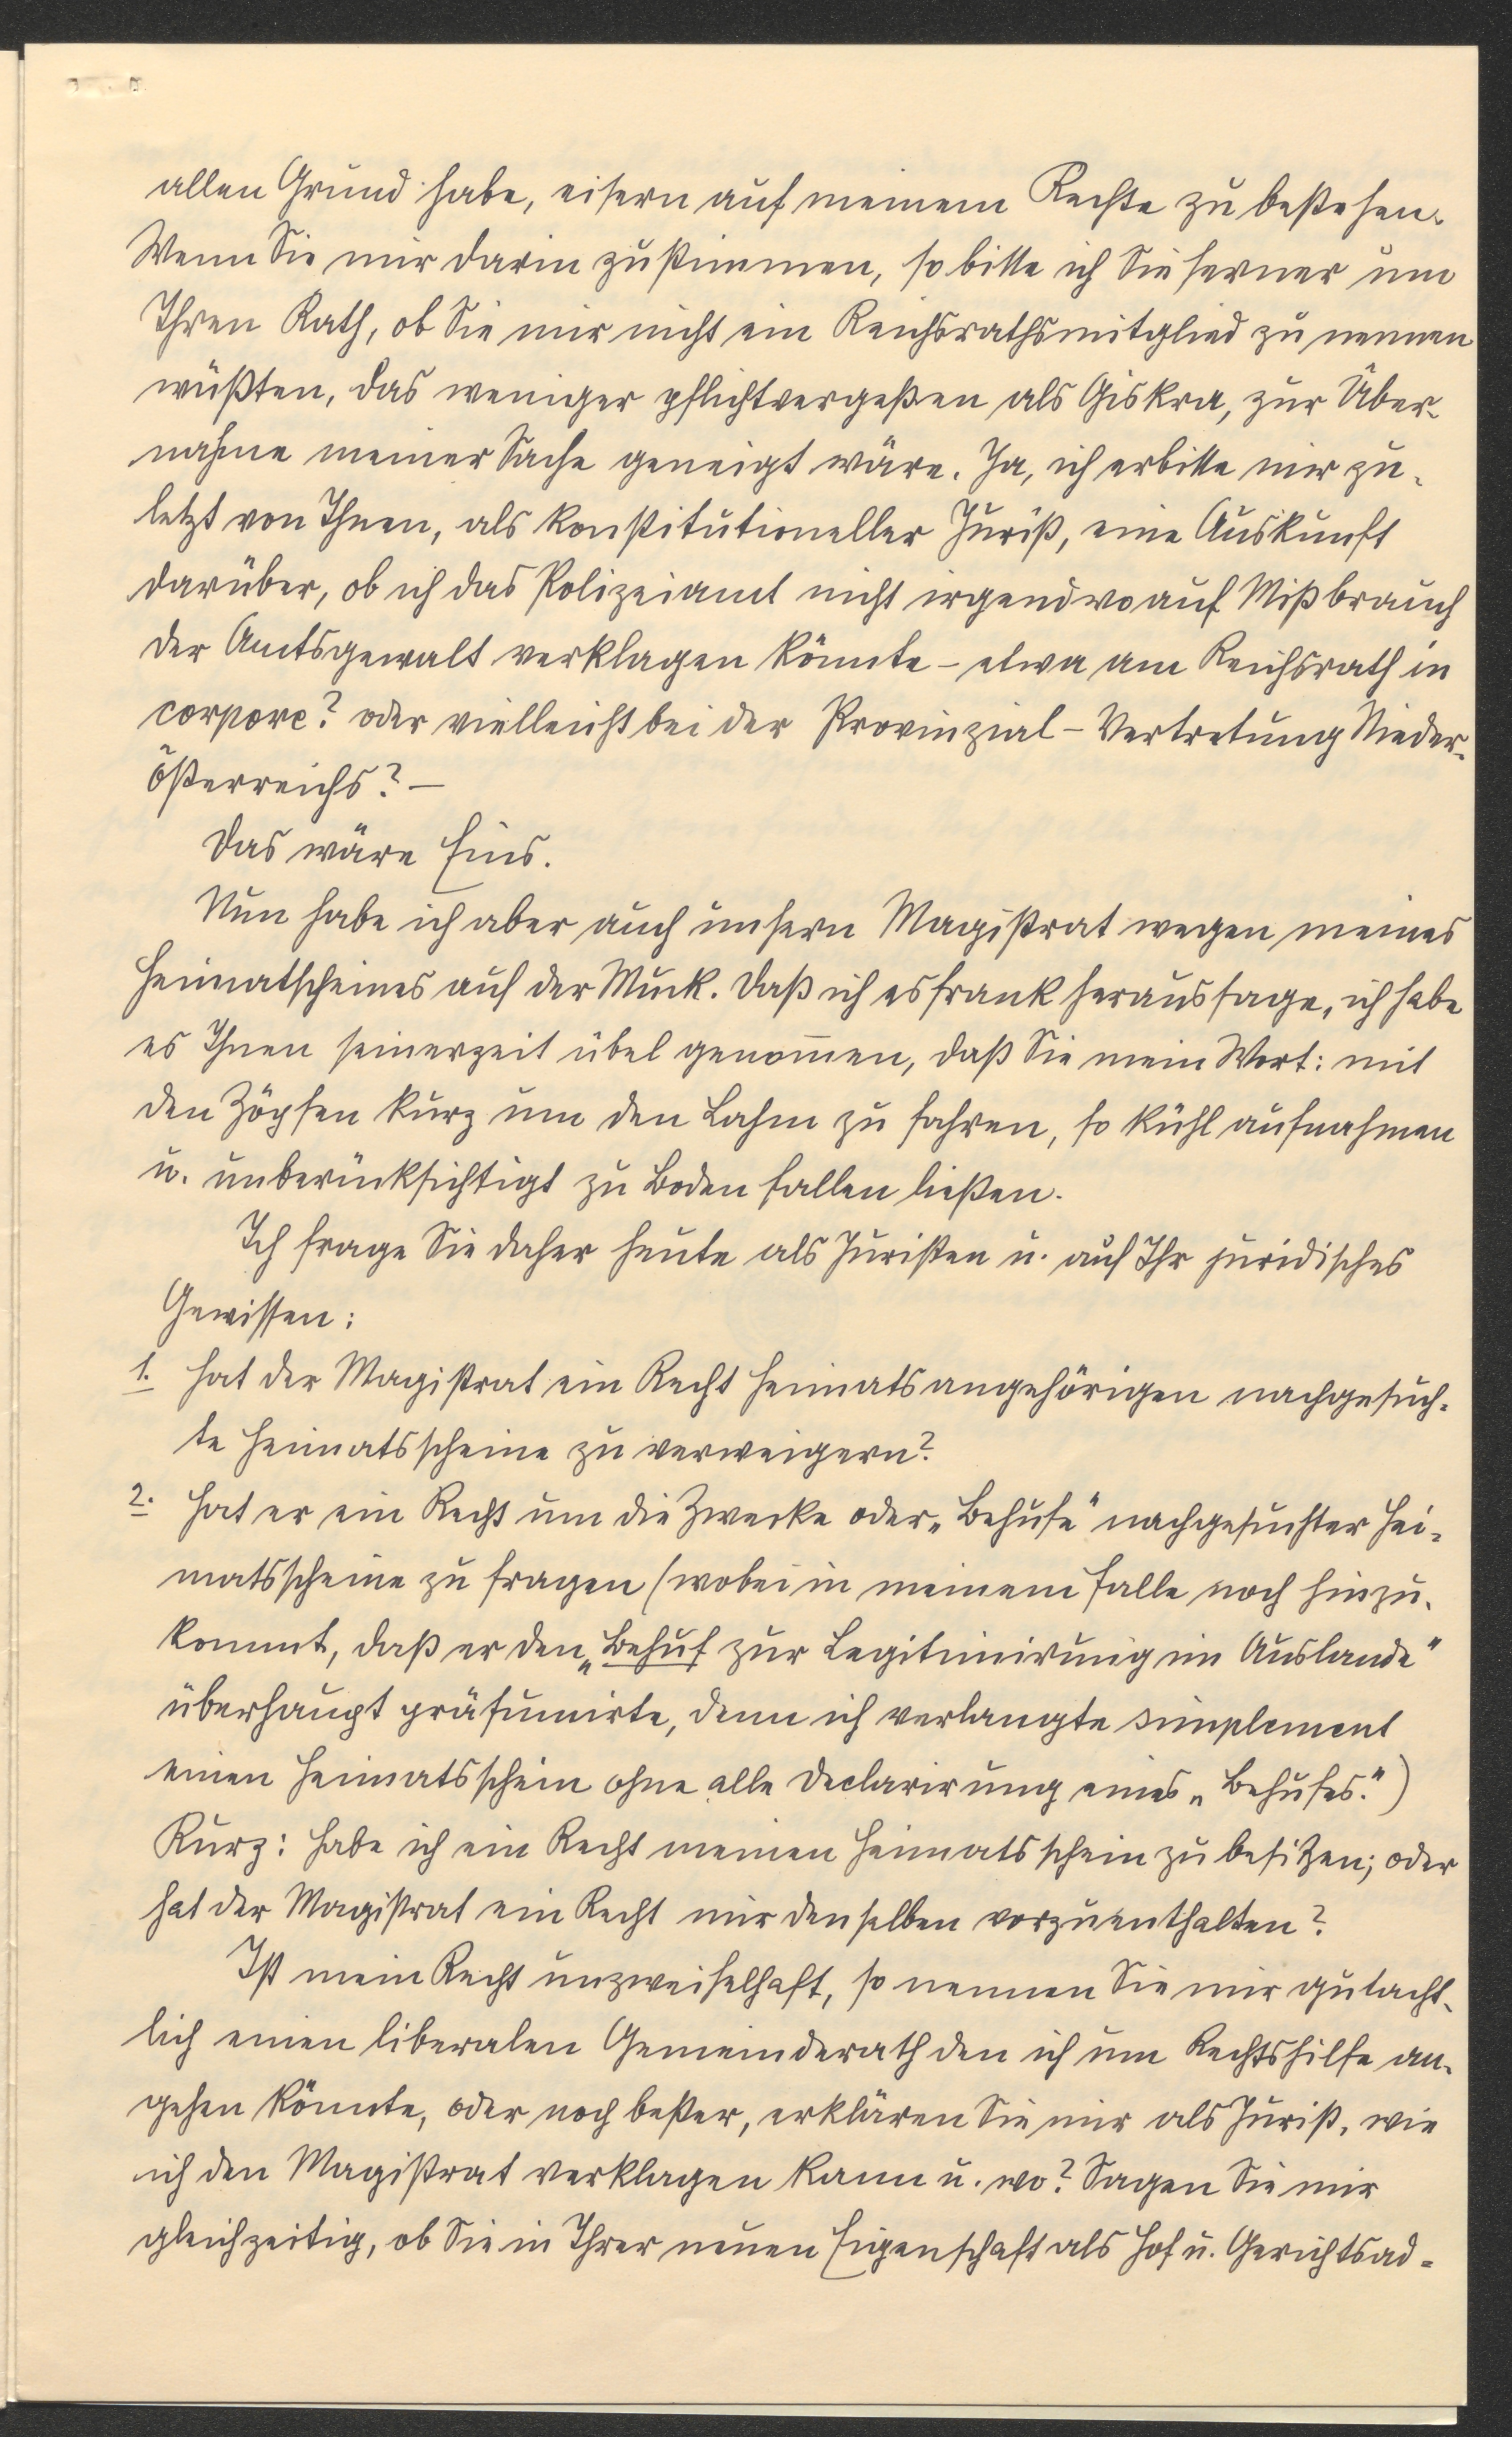 allen Grund habe, eisern auf meinem Rechte zu bestehen.
Wenn Sie mir darin zustimmen, so bitte ich Sie ferner um
Ihren Rath, ob Sie mir nicht ein Reichsrathsmitglied zu nennen
wüßten, das weniger pflichtvergeßen als Giskra, zur Über-
nahme meiner Sache geneigt wäre. Ja, ich erbitte mir zu-
letzt von Ihnen, als konstitutioneller Jurist, eine Auskunft
darüber, ob ich das Polizeiamt nicht irgendwo auf Mißbrauch
der Amtsgewalt verklagen könnte – etwa am Reichsrath in
corpore? oder vielleicht bei der Provinzial-Vertretung Nieder-
österreichs? –
Das wäre Eins.
Nun habe ich aber auch unsern Magistrat wegen meines
Heimatscheines auf der Muck. Daß ich es frank heraussage, ich habe
es Ihnen seinerzeit übel genom̄en, daß Sie mein Wort: mit
den Zöpfen kurz um den Lahm zu fahren, so kühl aufnahmen
u. unberücksichtigt zu Boden fallen ließen.
Ich frage Sie daher heute als Juristen u. auf Ihr juridisches
Gewissen:
1. Hat der Magistrat ein Recht Heimatsangehörigen nachgesuch-
te Heimatsscheine zu verweigern?
2. Hat er ein Recht um die Zwecke oder „Behufe" nachgesuchter Hei-
matsscheine zu fragen (wobei in meinem Falle noch hinzu-
kommt, daß er den „Behuf zur Legitimirung im Auslande"
überhaupt präsumirte, denn ich verlangte simplement
einen Heimatsschein ohne alle Declarirung eines „Behufes.")
Kurz: habe ich ein Recht meinen Heimatsschein zu besitzen; oder
hat der Magistrat ein Recht mir denselben vorzuenthalten?
Ist mein Recht unzweifelhaft, so nennen Sie mir gutacht-
lich einen liberalen Gemeinderath den ich um Rechtshilfe an-
gehen könnte, oder noch beßer, erklären Sie mir als Jurist, wie
ich den Magistrat verklagen kann u. wo? Sagen Sie mir
gleichzeitig, ob Sie in Ihrer neuen Eigenschaft als Hof u. Gerichtsad-